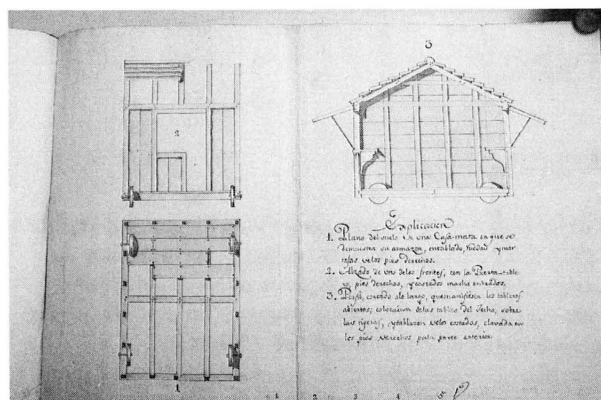 3
2
1
Explicacion
1. Plano del suelo de una Casa-mata en que se
demuestra su armazon, entablado, ruedas y
de los pies derechos.
2. Alzado de uno de los frentes, con la Puerta,
pies derechos, y costados
3. Perfil, cortado a lo largo, que manifiesta los tableros
abiertos; colocacion de las tablas del techo, sobre
las tijeras, y tablazon de los costados, clavada en
los pies derechos por la parte exterior
1 2 3 4